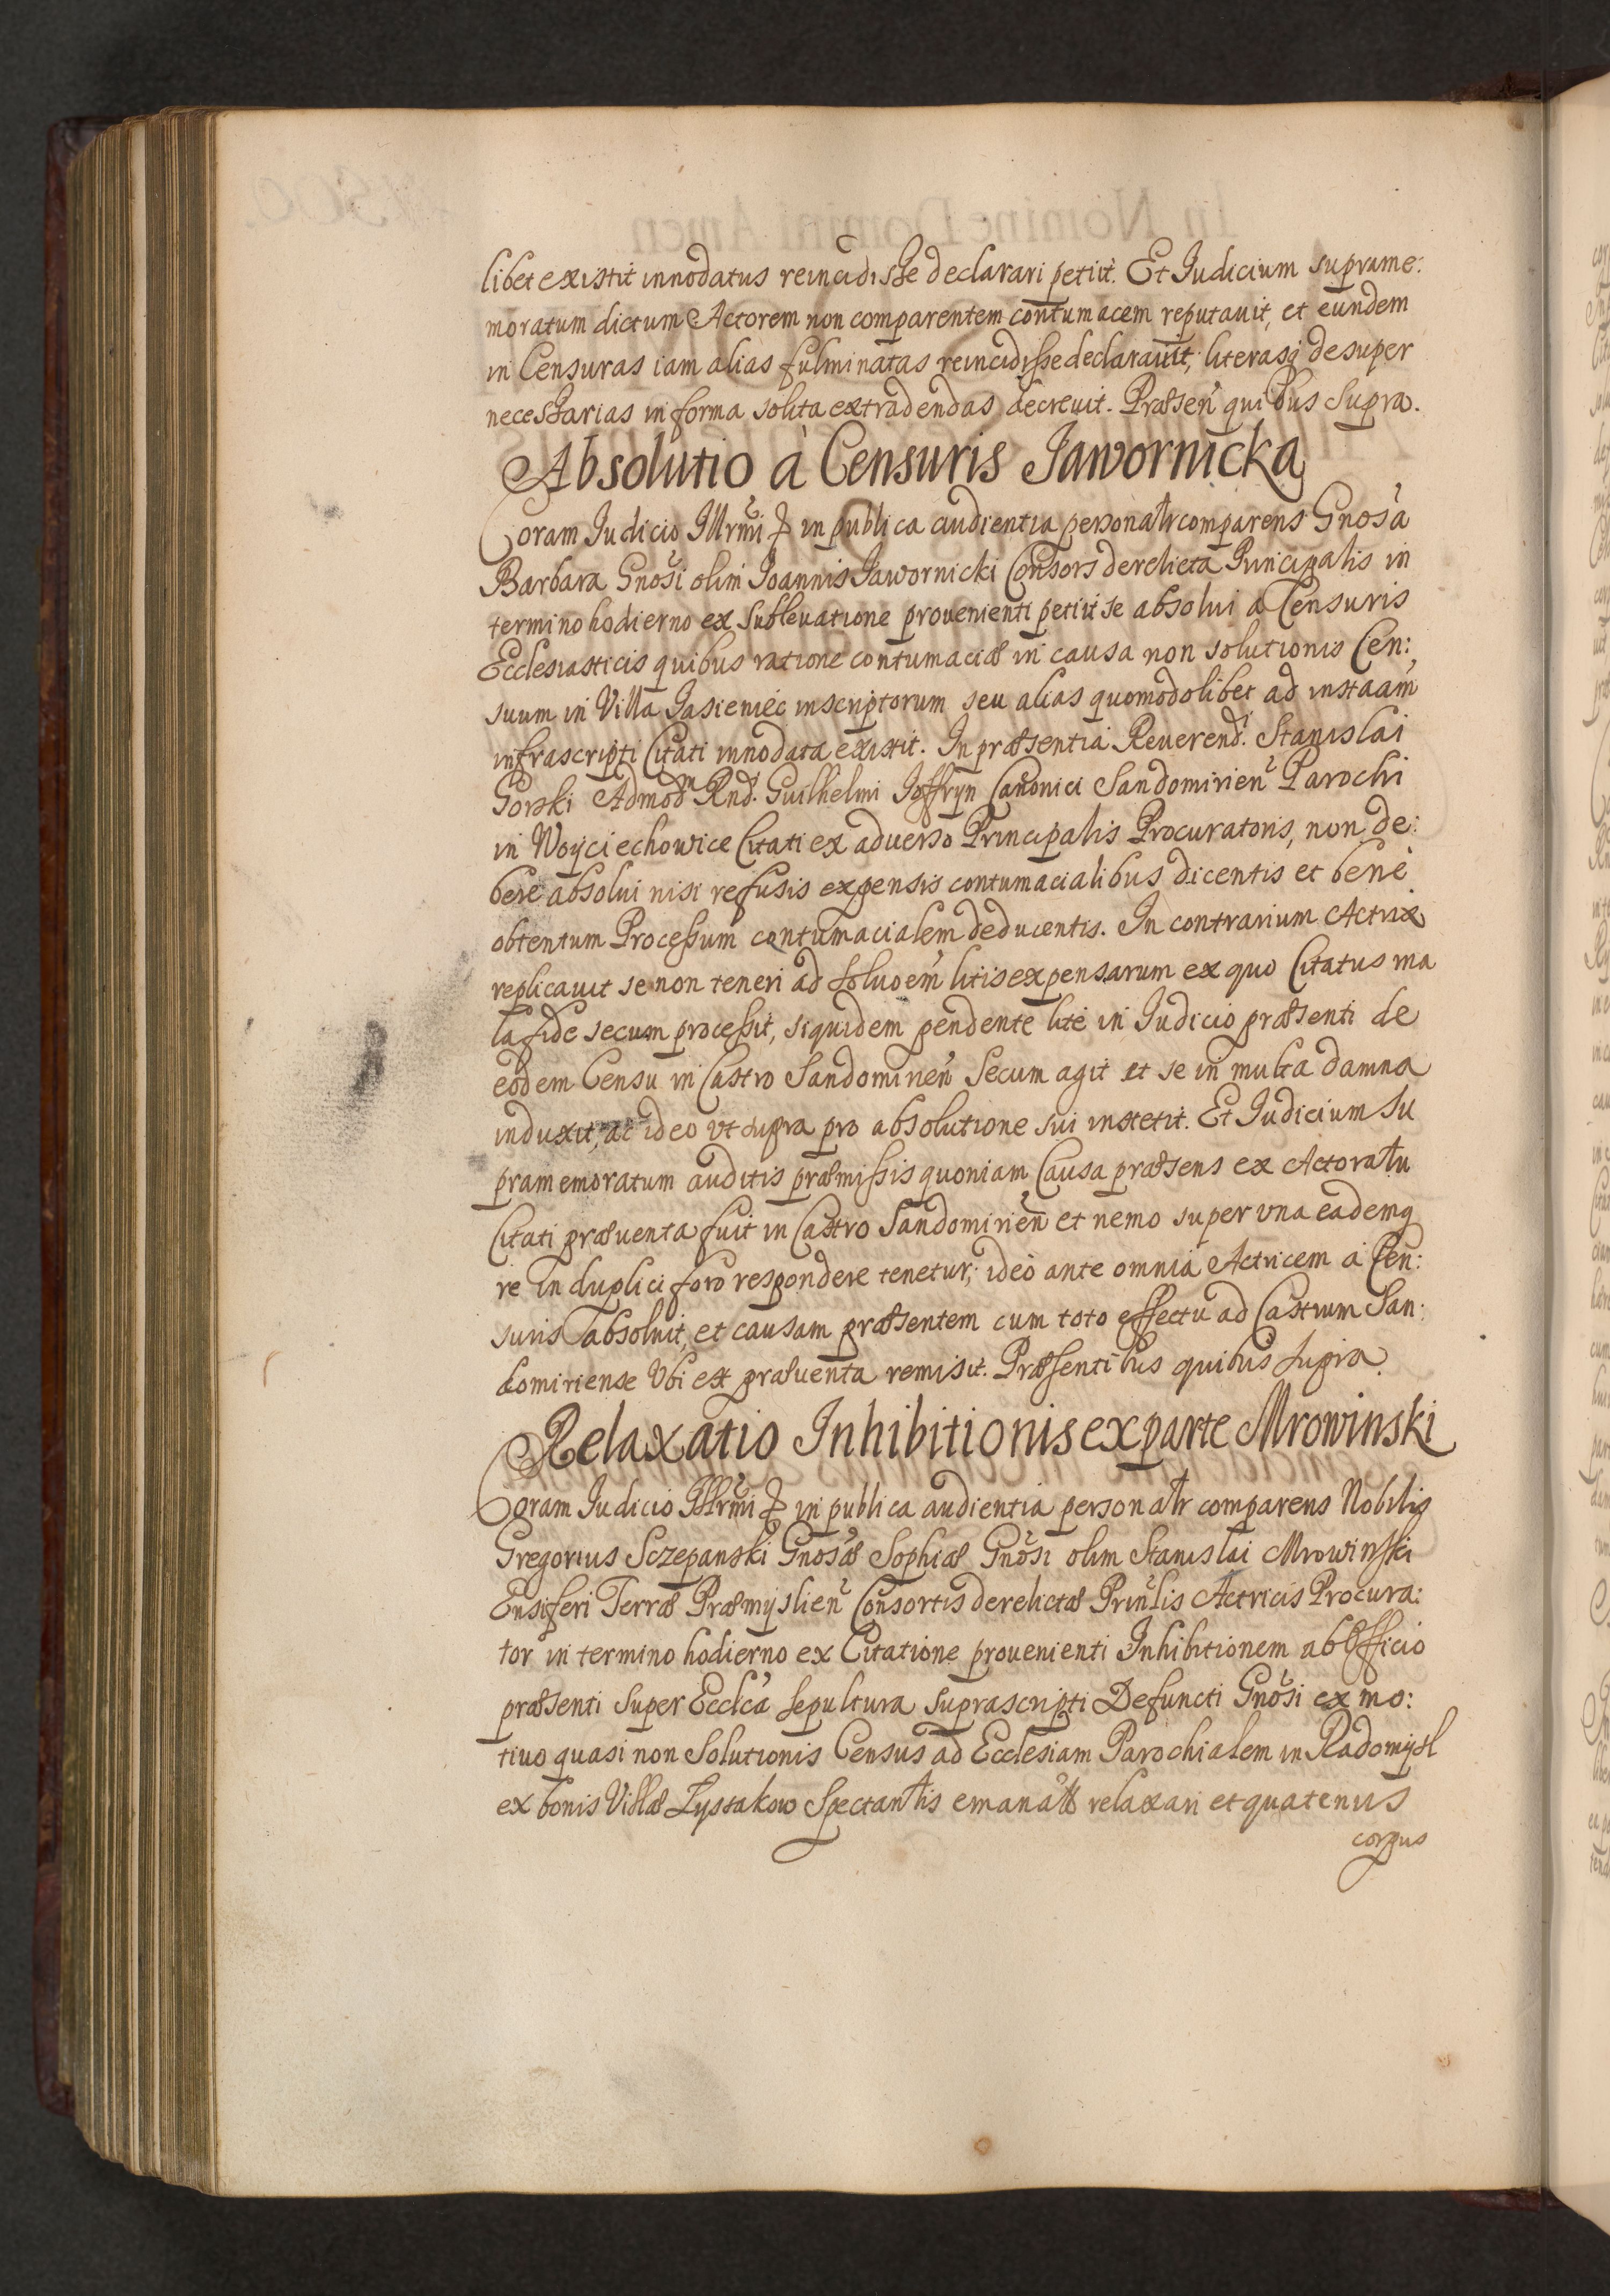 libet existit innodatus reincidisse declarari petiit. Et Iudicium suprame:
moratum dictum Actorem non comparentem contumacem reputauit, et eundem
in Censuras iam alias fulminatas reincidisse declarauit, literasq desuper
necessarias in forma solita extradendas decreuit. Præsen̄ quibus Supra.
Absolutio à Censuris Jawornicka
Coram Iudicio Illrmi & in publica audientia personalr comparens Gnosa
Barbara Gnosi olim Joannis Jawornicki Consors derelicta Principalis in
termino hodierno ex Subleuatione prouenienti petiit se absolui a Censuris
Ecclesiasticis quibus ratione contumaciæ in causa non solutionis Cen:
suum in Villa Jasieniec inscriptorum seu alias quomodolibet ad instaam
infrascripti Citati innodata existit. In præsentia Reuerend. Stanislai
Gorski Admod Rnd. Guilhelmi Joffryn Canonici Sandomirien Parochi
in Woyciechowice Citati ex aduerso Principalis Procuratoris, non de:
bere absolui nisi refusis expensis contumacialibus dicentis et bene
obtentum Processum contumacialem deducentis. In contrarium Actrix
replicauit se non teneri ad soluoem litis expensarum ex quo Citatus ma
la fide secum processit, siquidem pendente lite in Iudicio præsenti de
eodem Censu in Castro Sandomirien Secum agit et se in multa damna
induxit, ac ideo vt supra pro absolutione sui institit. Et Iudicium Su
pramemoratum auditis præmissis quoniam Causa præsens ex Actoratu
Citati præuenta fuit in Castro Sandomirien et nemo super vna eademq
re in duplici foro respondere tenetur, ideò ante omnia Actricem à Cen:
suris absoluit, et causam præsentem cum toto effectu ad Castrum San:
domiriense Vbi est præuenta remisit. Præsentibus quibus supra.
Relaxatio Inhibitionis ex parte Mrowinski
Coram Iudicio Illrmi & in publica audientia personalr comparens Nobilis
Gregorius Sczepanski Gnosæ Sophiæ Gnosi olim Stanislai Mrowinski
Ensiferi Terræ Præmyslien Consortis derelictæ Prinlis Actricis Procura:
tor in termino hodierno ex Citatione prouenienti Inhibitionem ab Officio
præsenti super Ecclca sepultura suprascripti Defuncti Gnosi ex mo:
tiuo quasi non Solutionis Census ad Ecclesiam Parochialem in Radomysl
ex bonis Villæ Zystakow Spectantis relaxari et quatenus
corpus